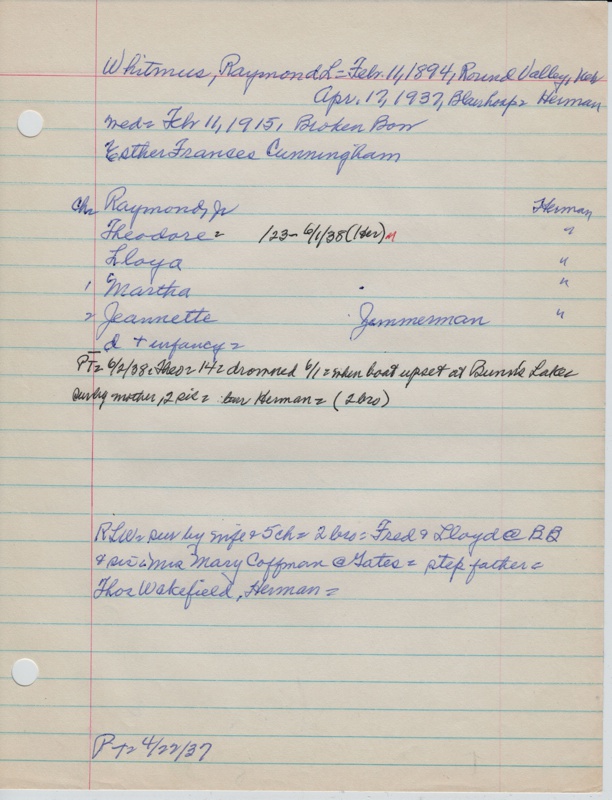 Whitmus, Raymond L = Feb. 11, 1894, Round Valley, Neb
Apr. 17, 1937, Blairhosp = Herman
med = Feb 11, 1915, Broken Bow
Esther Franses Cunningham
Ch = Raymond, Jr Herman
Theodore = /23 - 6/1/38 (Her) "
Lloyd "
1 Martha "
2 Jeannette Zimmerman "
d + infancy =
PT = 6/2/38, Theo = 14 = drowned 6/1 = when boat upset at Bunn's Lake
surby mother, 2 sis = bur Herman = (2 bro)
RLW = sur by wife & 5 ch = 2 bro = Fred & Lloyd @ B.B
& sis = Mrs Mary Coffman @ Gates = step father =
Thos Wakefield, Herman =
PT = 4/22/37